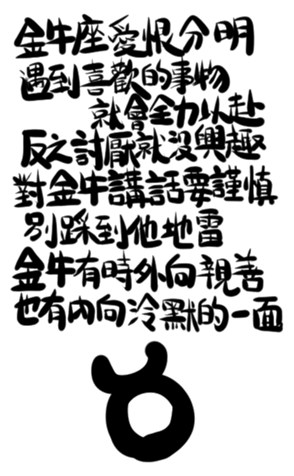 金牛座愛恨分明
遇到喜歡的事物
就會全力以赴
反之討厭就沒興趣
對金牛講話要謹慎
別踩到他地雷
金牛有時外向親善
也有內向冷默的一面